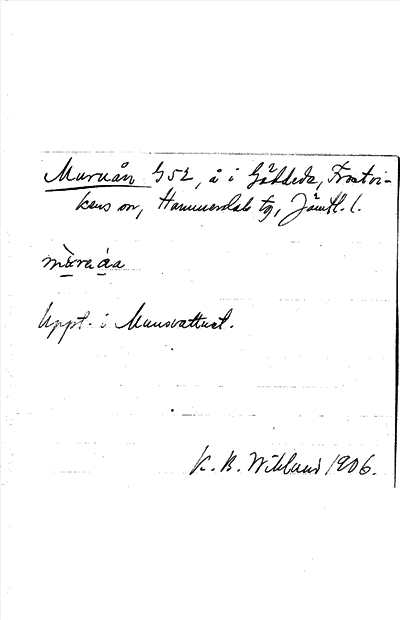 Muruån G52, å i Gäddede, Frostvi-
kens sn, Hammerdals tg, Jämtl. l.
Uppt. i Muusvattnet.
K. B. Wiklund 1906.